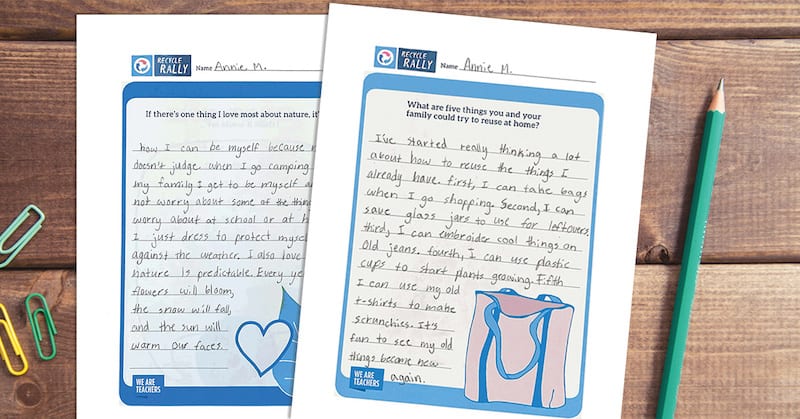 RECYCLE
RALLY
Name Annie M.
If there's one thing I love most about nature, it'
how I can be myself because
doesn't judge. when I go camping
my family I get to be myself a
not worry about some of the thing
worry about at school or at h
I just dress to protect mysel
against the weather. I also love
nature is predictable. Every ye
flowers will bloom,
the snow will fall,
and the sun will
warm our faces.
WE ARE
TEACHERS
RECYCLE
RALLY
Name Annie M.
What are five things you and your
family could try to reuse at home?
I've started really thinking a lot
about how to reuse the things I
already have. first, I can take bags
when I go shopping. Second, I can
save glass jars to use for leftovers.
third, I can embroider cool things on
old jeans. fourth, I can use plastic
cups to start plants growing. Fifth
I can use my old
t-shirts to make
scrunchies. It's
fun to see my old
things become new
again.
WE ARE
TEACHERS